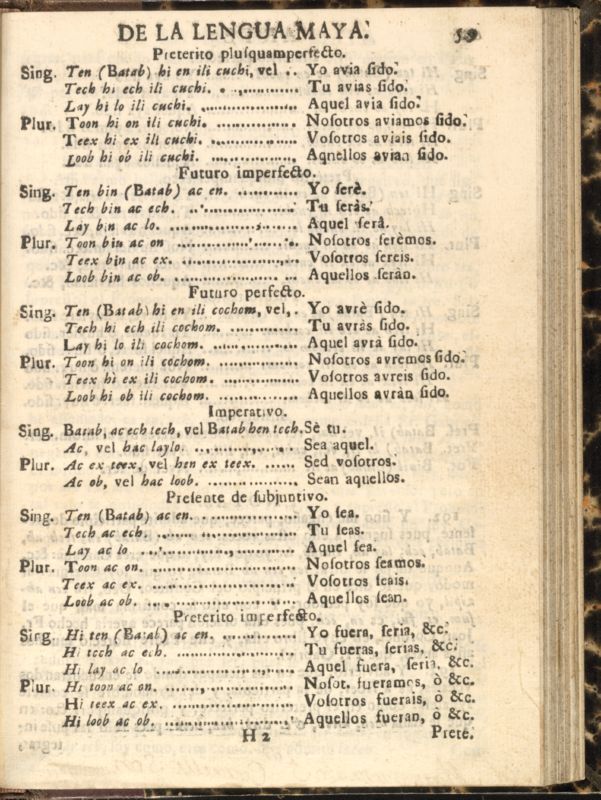 DE LA LENGUA MAYA. 59
Preterito pluſquamperfecto.
Sing. Ten (Batab) hi en ili cuchi, vel .. Yo avia ſido.
Tech hi ech ili cuchi. Tu avias ſido.
Lay hi lo ili cuchi. Aquel avia ſido.
Plur. Toon hi on ili cuchi. Noſotros aviamos ſido.
Teex hi ex ili cuchi. Voſotros aviais ſido.
Loob hi ob ili cuchi. Aqnellos avian ſido.
Futuro imperfecto.
Sing. Ten bin (Batab) ac en. Yo ſerè.
Tech bin ac ech. Tu ſeràs.
Lay bin ac lo. Aquel ſerà.
Plur. Toon bin ac on Noſotros ſerèmos.
Teex bin ac ex. Voſotros ſereis.
Loob bin ac ob. Aquellos ſeràn.
Futuro perfecto.
Sing. Ten (Batab) hi en ili cochom, vel,. Yo avrè ſido.
Tech hi ech ili cochom. Tu avràs ſido.
Lay hi lo ili cochom. Aquel avrà ſido.
Plur. Toon hi on ili cochom. Noſotros avremos ſido.
Teex hi ex ili cochom. Voſotros avreis ſido.
Loob hi ob ili cochom. Aquellos avràn ſido.
Imperativo.
Sing. Batab, ac ech tech, vel Batab hen tech. Sè tu.
Ac, vel hac laylo. Sea aquel.
Plur. Ac ex teex, vel hen ex teex. Sed voſotros.
Ac ob, vel hac loob. Sean aquellos.
Preſente de ſubjuntivo.
Sing. Ten (Batab) ac en. Yo ſea.
Tech ac ech. Tu ſeas.
Lay ac lo Aquel ſea.
Plur. Toon ac on. Noſotros ſeamos.
Teex ac ex. Voſotros ſeais.
Loob ac ob. Aquellos ſean.
Preterito imperfecto.
Sing. Hi ten (Batab) ac en. Yo fuera, ſeria, &c.
Hi tech ac ech. Tu fueras, ſerias, &c.
Hi lay ac lo Aquel fuera, ſeria, &c.
Plur. Hi toon ac on. Noſot. fueramos, ò &c.
Hi teex ac ex. Voſotros fuerais, ò &c.
Hi loob ac ob. Aquellos fueran, ò &c.
H 2 Prete.